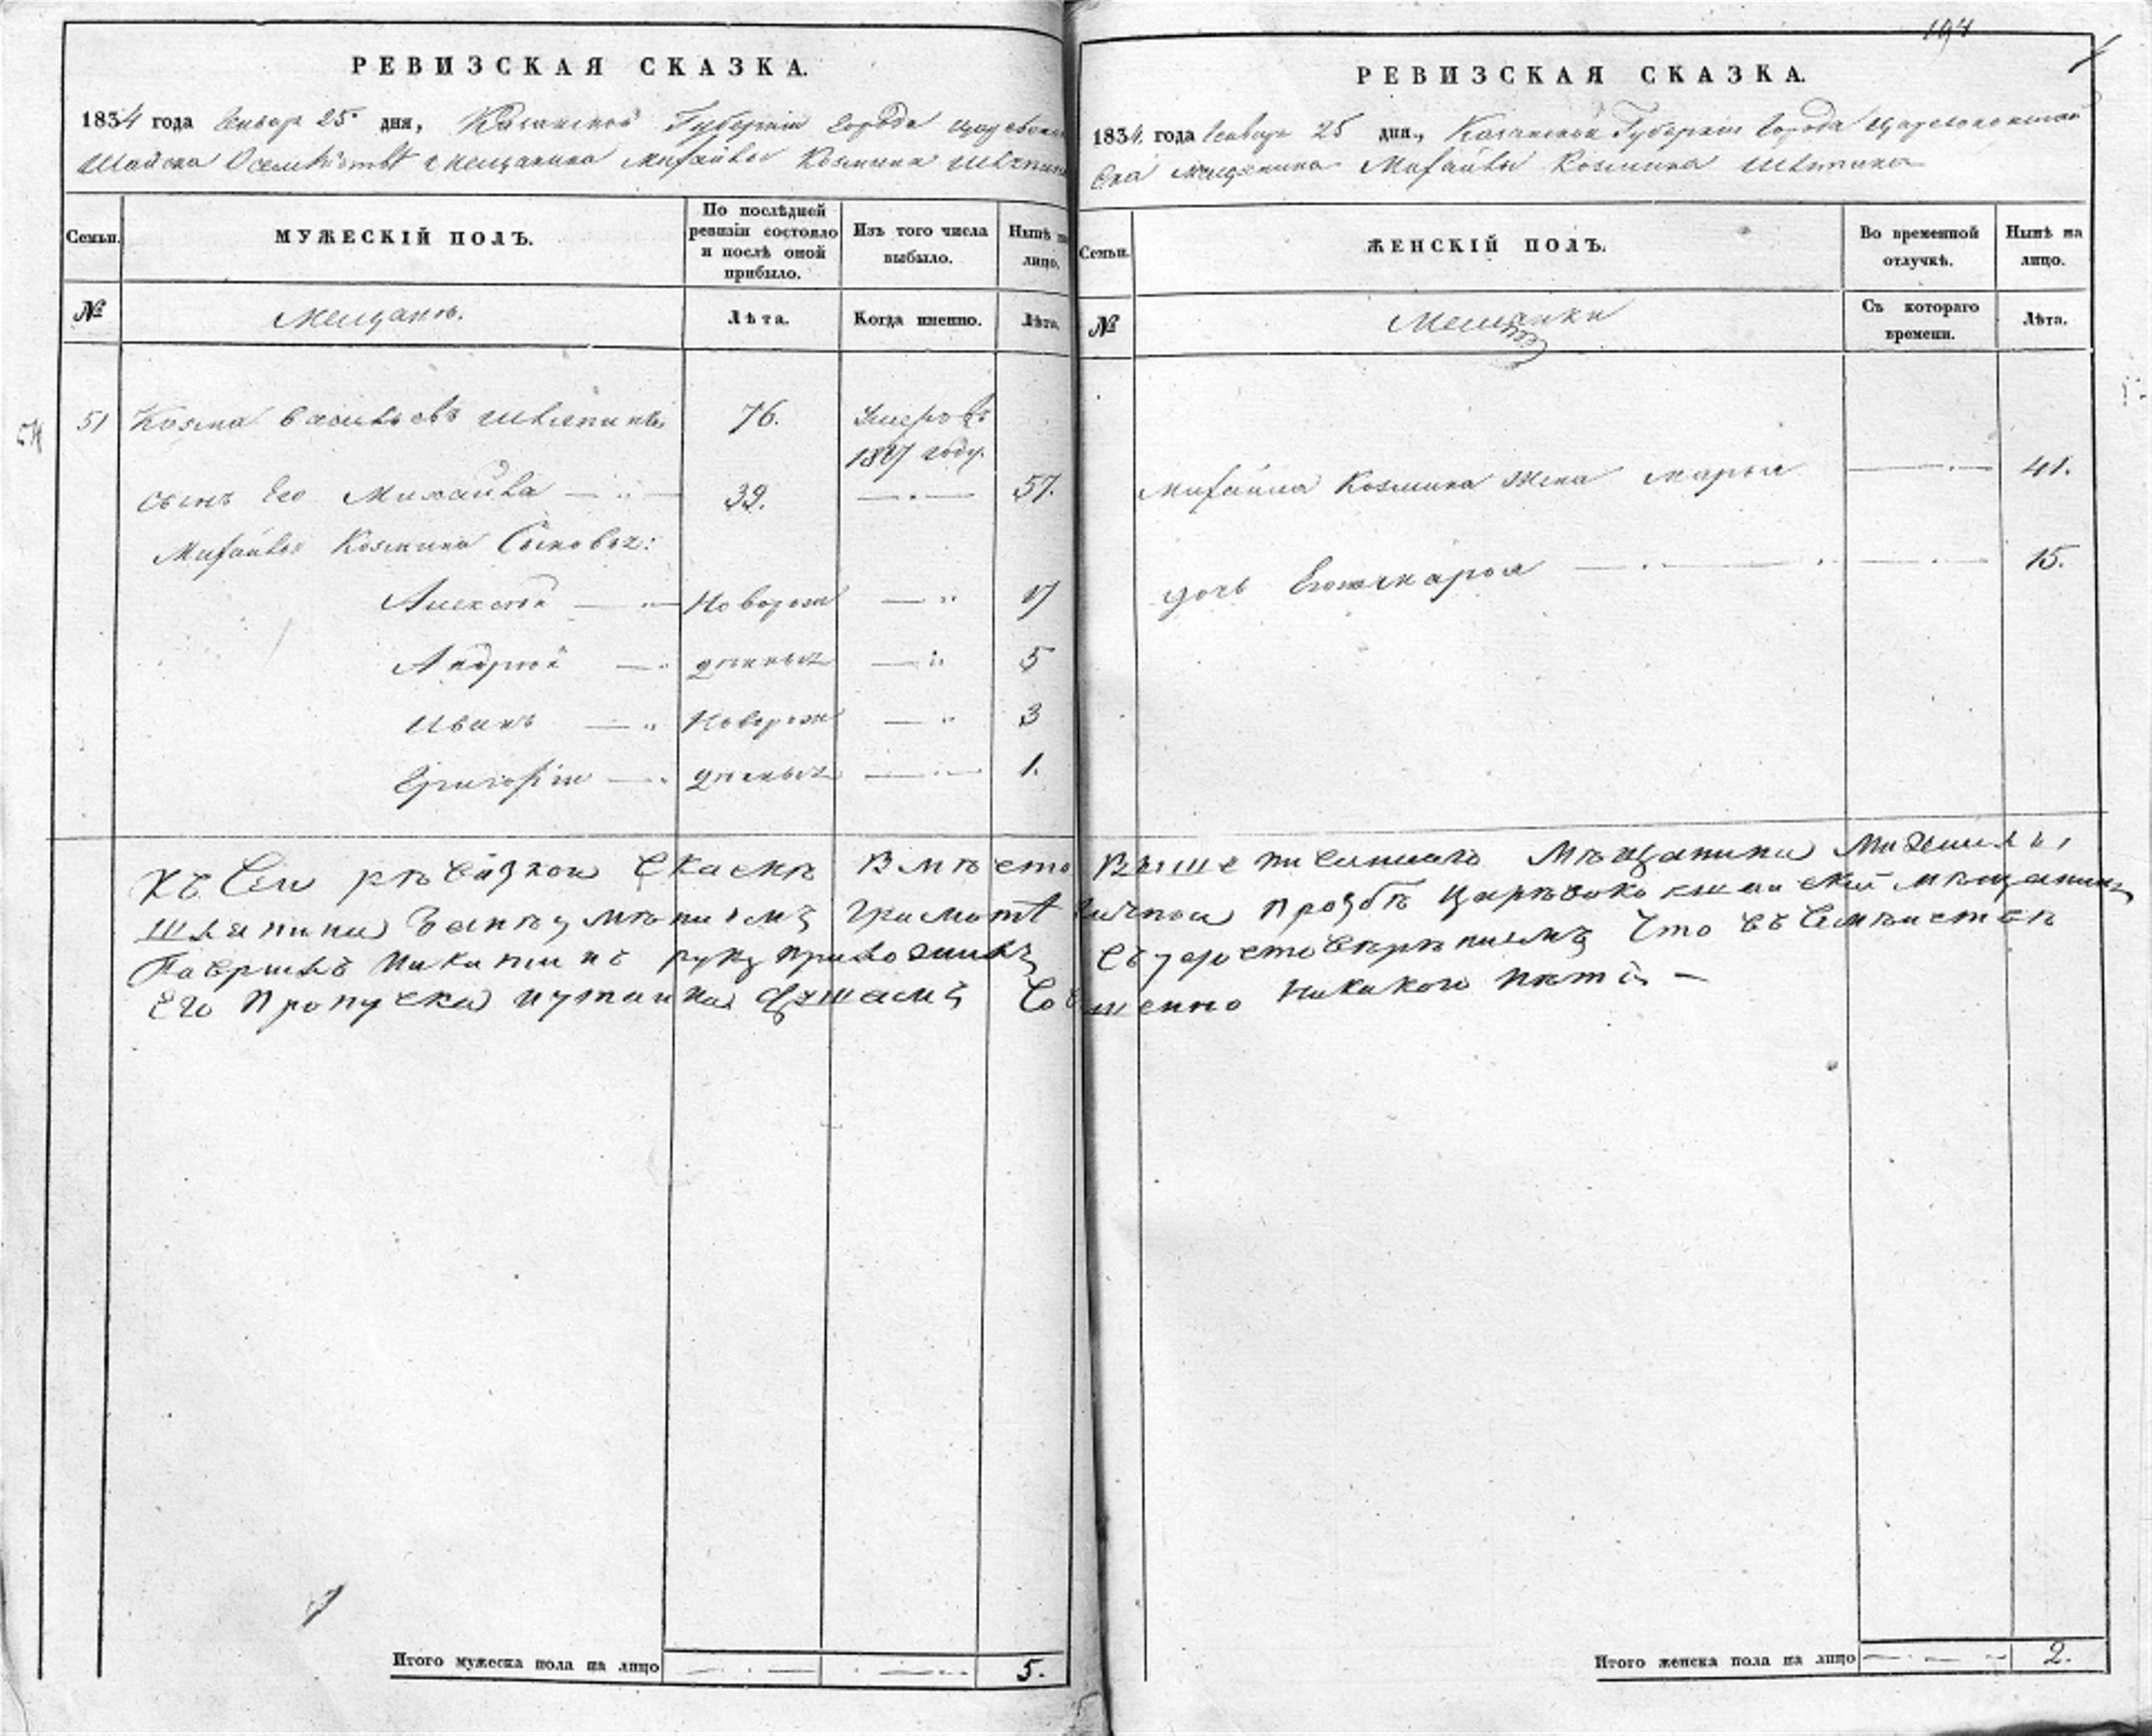 РЕВИЗСКАЯ СКАЗКА.
1834 года Генвар 25. дня, Казанской Губернии города Царевокок
шайска О семействе мещанина Михайлы Козмина Шляпина
Семьи.
МУЖЕСКІЙ ПОЛЪ.
По послѣдней ревизіи состояло и послѣ оной прибыло.
Изъ того числа выбыло.
Нынѣ на лицо.
№
Мещанъ.
Лѣта.
Когда именно.
Лѣта.
51 Козма Васильевъ Шляпинъ 76. Умеръ въ
1817 году.
сынъ Его Михайла 39. 57.
Михайлы Козмина Сыновья:
Алексей Новорож 17
Андрей денныя 5
Иванъ Новорож 3
Григорій денныя 1.
Итого мужеска пола на лицо 5.
194
РЕВИЗСКАЯ СКАЗКА.
1834 года Генваря 25 дня, Казанской Губернии Города Царевококшай
ска мещанина Михайлы Козмина Шляпина
Семьи.
ЖЕНСКІЙ ПОЛЪ.
Во временной отлучкѣ.
Нынѣ на лицо.
№
Мещанки
Съ котораго времени.
Лѣта.
Михайла Козмина Жена Марья 41.
дочь Его 15.
Итого женска пола на лицо 2.
Къ Сей рѣвизкой Скаскѣ Вмѣсто Вышеписаннаго Мѣщанина Михаилы
Шляпина Занѣумѣниемъ грамотѣ личной прозбѣ Царѣвококшайский мѣщанинъ
Гаврилъ Никитинъ руку приложилъ Съ удостовѣрѣниемъ Что въ Сѣмѣистве
Его Пропуска душамъ Совшенно Никакого нѣтъ